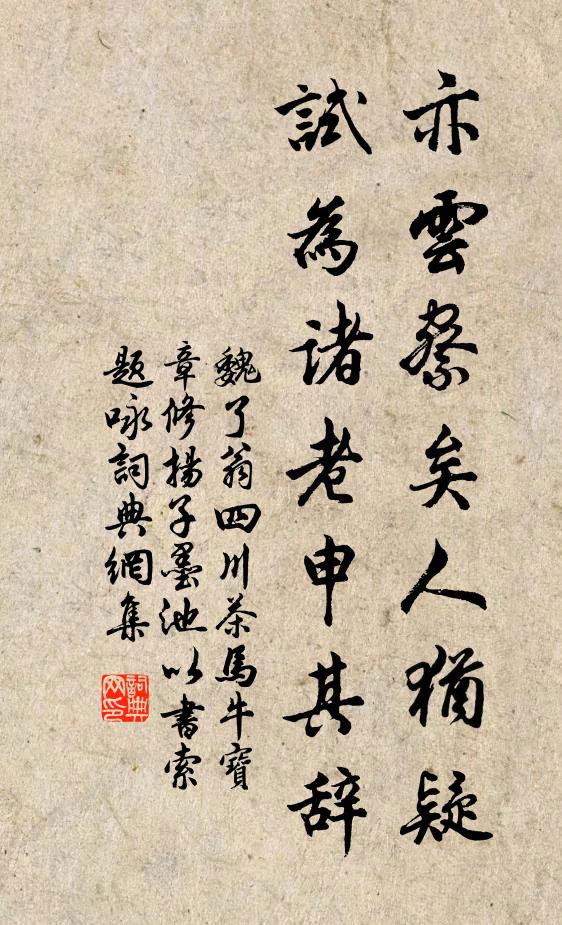 亦雲察矣人猶疑
試為諸老申其辞
魏了翁四川茶馬牛寶
章修揚子墨池以書索
題咏詞典網集
詞典网印